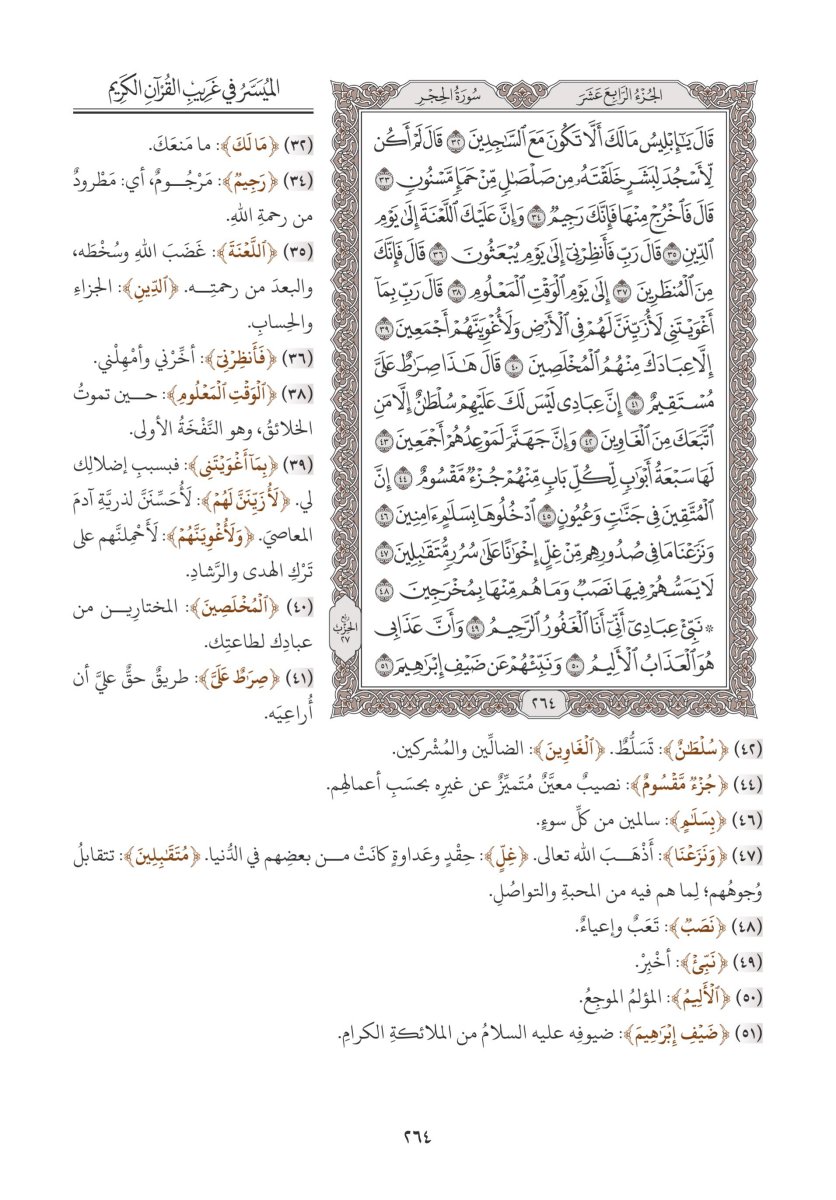 الميسر في غريب القرآن الكريم
الجزء الرابع عشر
سورة الحجر
قَالَ يَٰٓإِبْلِيسُ مَا لَكَ أَلَّا تَكُونَ مَعَ ٱلسَّٰجِدِينَ ٣٢ قَالَ لَمْ أَكُن
لِّأَسْجُدَ لِبَشَرٍ خَلَقْتَهُۥ مِن صَلْصَٰلٍ مِّنْ حَمَإٍ مَّسْنُونٍ ٣٣
قَالَ فَٱخْرُجْ مِنْهَا فَإِنَّكَ رَجِيمٌ ٣٤ وَإِنَّ عَلَيْكَ ٱللَّعْنَةَ إِلَىٰ يَوْمِ
ٱلدِّينِ ٣٥ قَالَ رَبِّ فَأَنظِرْنِىٓ إِلَىٰ يَوْمِ يُبْعَثُونَ ٣٦ قَالَ فَإِنَّكَ
مِنَ ٱلْمُنظَرِينَ ٣٧ إِلَىٰ يَوْمِ ٱلْوَقْتِ ٱلْمَعْلُومِ ٣٨ قَالَ رَبِّ بِمَآ
أَغْوَيْتَنِى لَأُزَيِّنَنَّ لَهُمْ فِى ٱلْأَرْضِ وَلَأُغْوِيَنَّهُمْ أَجْمَعِينَ ٣٩
إِلَّا عِبَادَكَ مِنْهُمُ ٱلْمُخْلَصِينَ ٤٠ قَالَ هَٰذَا صِرَٰطٌ عَلَىَّ
مُسْتَقِيمٌ ٤١ إِنَّ عِبَادِى لَيْسَ لَكَ عَلَيْهِمْ سُلْطَٰنٌ إِلَّا مَنِ
ٱتَّبَعَكَ مِنَ ٱلْغَاوِينَ ٤٢ وَإِنَّ جَهَنَّمَ لَمَوْعِدُهُمْ أَجْمَعِينَ ٤٣
لَهَا سَبْعَةُ أَبْوَٰبٍ لِّكُلِّ بَابٍ مِّنْهُمْ جُزْءٌ مَّقْسُومٌ ٤٤ إِنَّ
ٱلْمُتَّقِينَ فِى جَنَّٰتٍ وَعُيُونٍ ٤٥ ٱدْخُلُوهَا بِسَلَٰمٍ ءَامِنِينَ ٤٦
وَنَزَعْنَا مَا فِى صُدُورِهِم مِّنْ غِلٍّ إِخْوَٰنًا عَلَىٰ سُرُرٍ مُّتَقَٰبِلِينَ ٤٧
لَا يَمَسُّهُمْ فِيهَا نَصَبٌ وَمَا هُم مِّنْهَا بِمُخْرَجِينَ ٤٨
۞ نَبِّئْ عِبَادِىٓ أَنِّىٓ أَنَا ٱلْغَفُورُ ٱلرَّحِيمُ ٤٩ وَأَنَّ عَذَابِى
هُوَ ٱلْعَذَابُ ٱلْأَلِيمُ ٥٠ وَنَبِّئْهُمْ عَن ضَيْفِ إِبْرَٰهِيمَ ٥١
ربع
الحزب
٢٧
٢٦٤
(٣٢) ﴿مَا لَكَ﴾: ما مَنعَكَ.
(٣٤) ﴿رَجِيمٌ﴾: مَرْجُومٌ، أي: مَطْرودٌ
من رحمةِ اللهِ.
(٣٥) ﴿ٱللَّعْنَةَ﴾: غَضَبَ اللهِ وسُخْطَه،
والبعدَ من رحمتِه. ﴿ٱلدِّينِ﴾: الجزاءِ
والحِسابِ.
(٣٦) ﴿فَأَنظِرْنِىٓ﴾: أخِّرْني وأمْهِلْني.
(٣٨) ﴿ٱلْوَقْتِ ٱلْمَعْلُومِ﴾: حين تموتُ
الخلائقُ، وهو النَّفْخَةُ الأولى.
(٣٩) ﴿بِمَآ أَغْوَيْتَنِى﴾: فبسببِ إضلالِك
لي. ﴿لَأُزَيِّنَنَّ لَهُمْ﴾: لَأُحَسِّنَنَّ لذريَّةِ آدمَ
المعاصيَ. ﴿وَلَأُغْوِيَنَّهُمْ﴾: لَأَحْمِلنَّهم على
تَرْكِ الهدى والرَّشادِ.
(٤٠) ﴿ٱلْمُخْلَصِينَ﴾: المختارِين من
عبادِك لطاعتِك.
(٤١) ﴿صِرَٰطٌ عَلَىَّ﴾: طريقٌ حقٌّ عليَّ أن
أُراعِيَه.
(٤٢) ﴿سُلْطَٰنٌ﴾: تَسَلُّطٌ. ﴿ٱلْغَاوِينَ﴾: الضالِّين والمُشْركين.
(٤٤) ﴿جُزْءٌ مَّقْسُومٌ﴾: نصيبٌ معيَّنٌ مُتَميِّزٌ عن غيرِه بحسَبِ أعمالهِم.
(٤٦) ﴿بِسَلَٰمٍ﴾: سالمين من كلِّ سوءٍ.
(٤٧) ﴿وَنَزَعْنَا﴾: أَذْهَبَ الله تعالى. ﴿غِلٍّ﴾: حِقْدٍ وعَداوةٍ كانَتْ من بعضِهم في الدُّنيا. ﴿مُتَقَٰبِلِينَ﴾: تتقابلُ
وُجوهُهم؛ لِما هم فيه من المحبةِ والتواصُلِ.
(٤٨) ﴿نَصَبٌ﴾: تَعَبٌ وإعياءٌ.
(٤٩) ﴿نَبِّئْ﴾: أخْبِرْ.
(٥٠) ﴿ٱلْأَلِيمُ﴾: المؤلمُ الموجِعُ.
(٥١) ﴿ضَيْفِ إِبْرَٰهِيمَ﴾: ضيوفِه عليه السلامُ من الملائكةِ الكرامِ.
٢٦٤